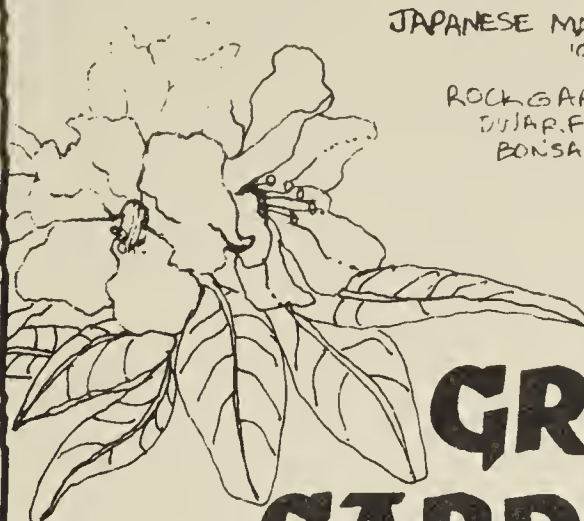 JAPANESE MA
ROCKGAR
DWARF
BONSA
GR
GARD